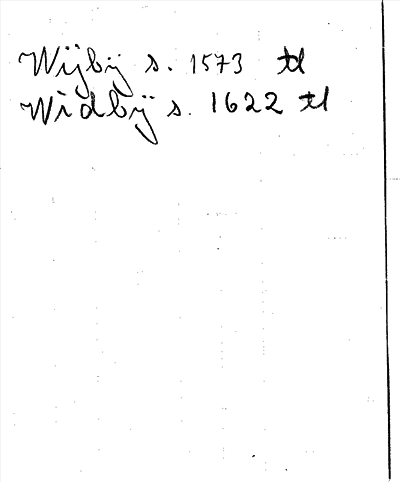 Wijbij s. 1573 tl
Widbÿ s. 1622 tl